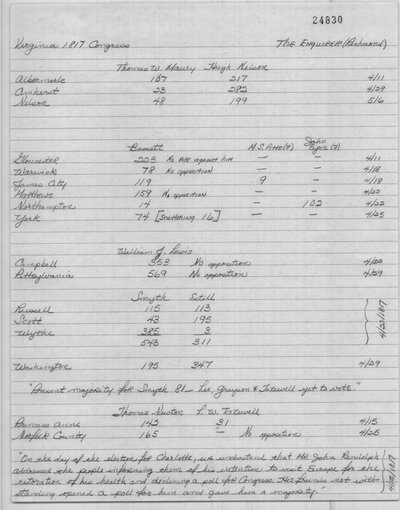 24830
Virginia 1817 Congress The Enquirer (Richmond)
Thomas W. Maury Hugh Nelson
Albemarle 157 217 4/11
Amherst 23 282 4/29
Nelson 48 199 5/6
Bassett M.S. Pitts(?) John Eyre (?)
Gloucester 223 No Pole against him — — 4/11
Warwick 78 No opposition — — 4/18
James City 119 9 — 4/18
Matthews 159 No opposition — — 4/22
Northampton 14 — 102 4/22
York 74 [Scattering 16] — — 4/25
William J. Lewis
Campbell 353 No opposition 4/22
Pittsylvania 569 No opposition 4/29
Smyth Estill
Russell 115 113
Scott 43 195
Wythe 385 3
543 311
4/22/1817
Washington 195 347 4/29
"Present majority for Smyth 81 – Lee, Grayson & Tazewell yet to vote."
Thomas Newton L.W. Tazewell
Princess Anne 142 31 4/15
Norfolk County 165 — No opposition 4/25
"On the day of the election for Charlotte, we understand that Mr. John Randolph
addressed the people informing them of his intention to visit Europe for the
restoration of his health and declining a poll for Congress. His friends not with-
standing opened a poll for him and gave him a majority."